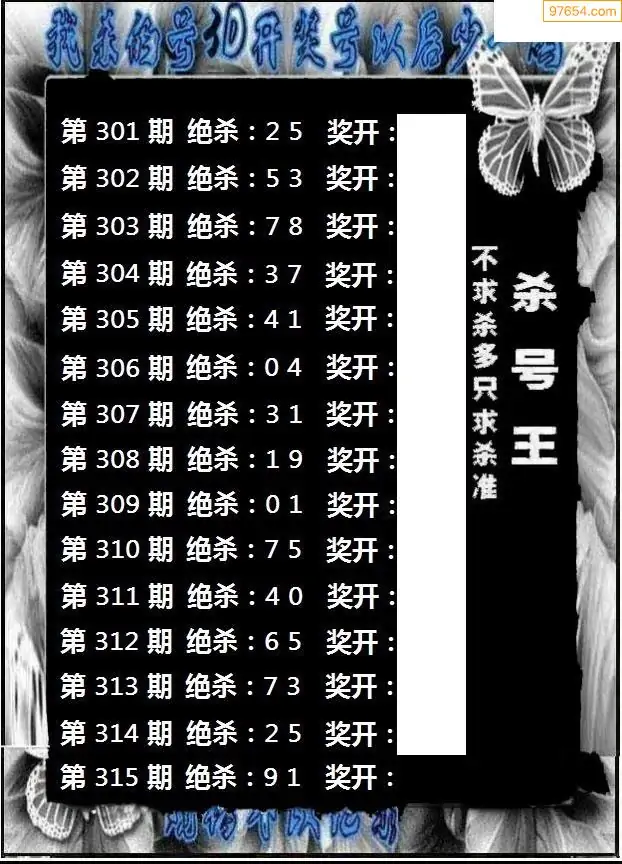 97654.com
我杀的号3D开奖号以后少
第 301 期 绝杀：2 5 奖开：
第 302 期 绝杀：5 3 奖开：
第 303 期 绝杀：7 8 奖开：
第 304 期 绝杀：3 7 奖开：
第 305 期 绝杀：4 1 奖开：
第 306 期 绝杀：0 4 奖开：
第 307 期 绝杀：3 1 奖开：
第 308 期 绝杀：1 9 奖开：
第 309 期 绝杀：0 1 奖开：
第 310 期 绝杀：7 5 奖开：
第 311 期 绝杀：4 0 奖开：
第 312 期 绝杀：6 5 奖开：
第 313 期 绝杀：7 3 奖开：
第 314 期 绝杀：2 5 奖开：
第 315 期 绝杀：9 1 奖开：
杀号王
不求杀多只求杀准